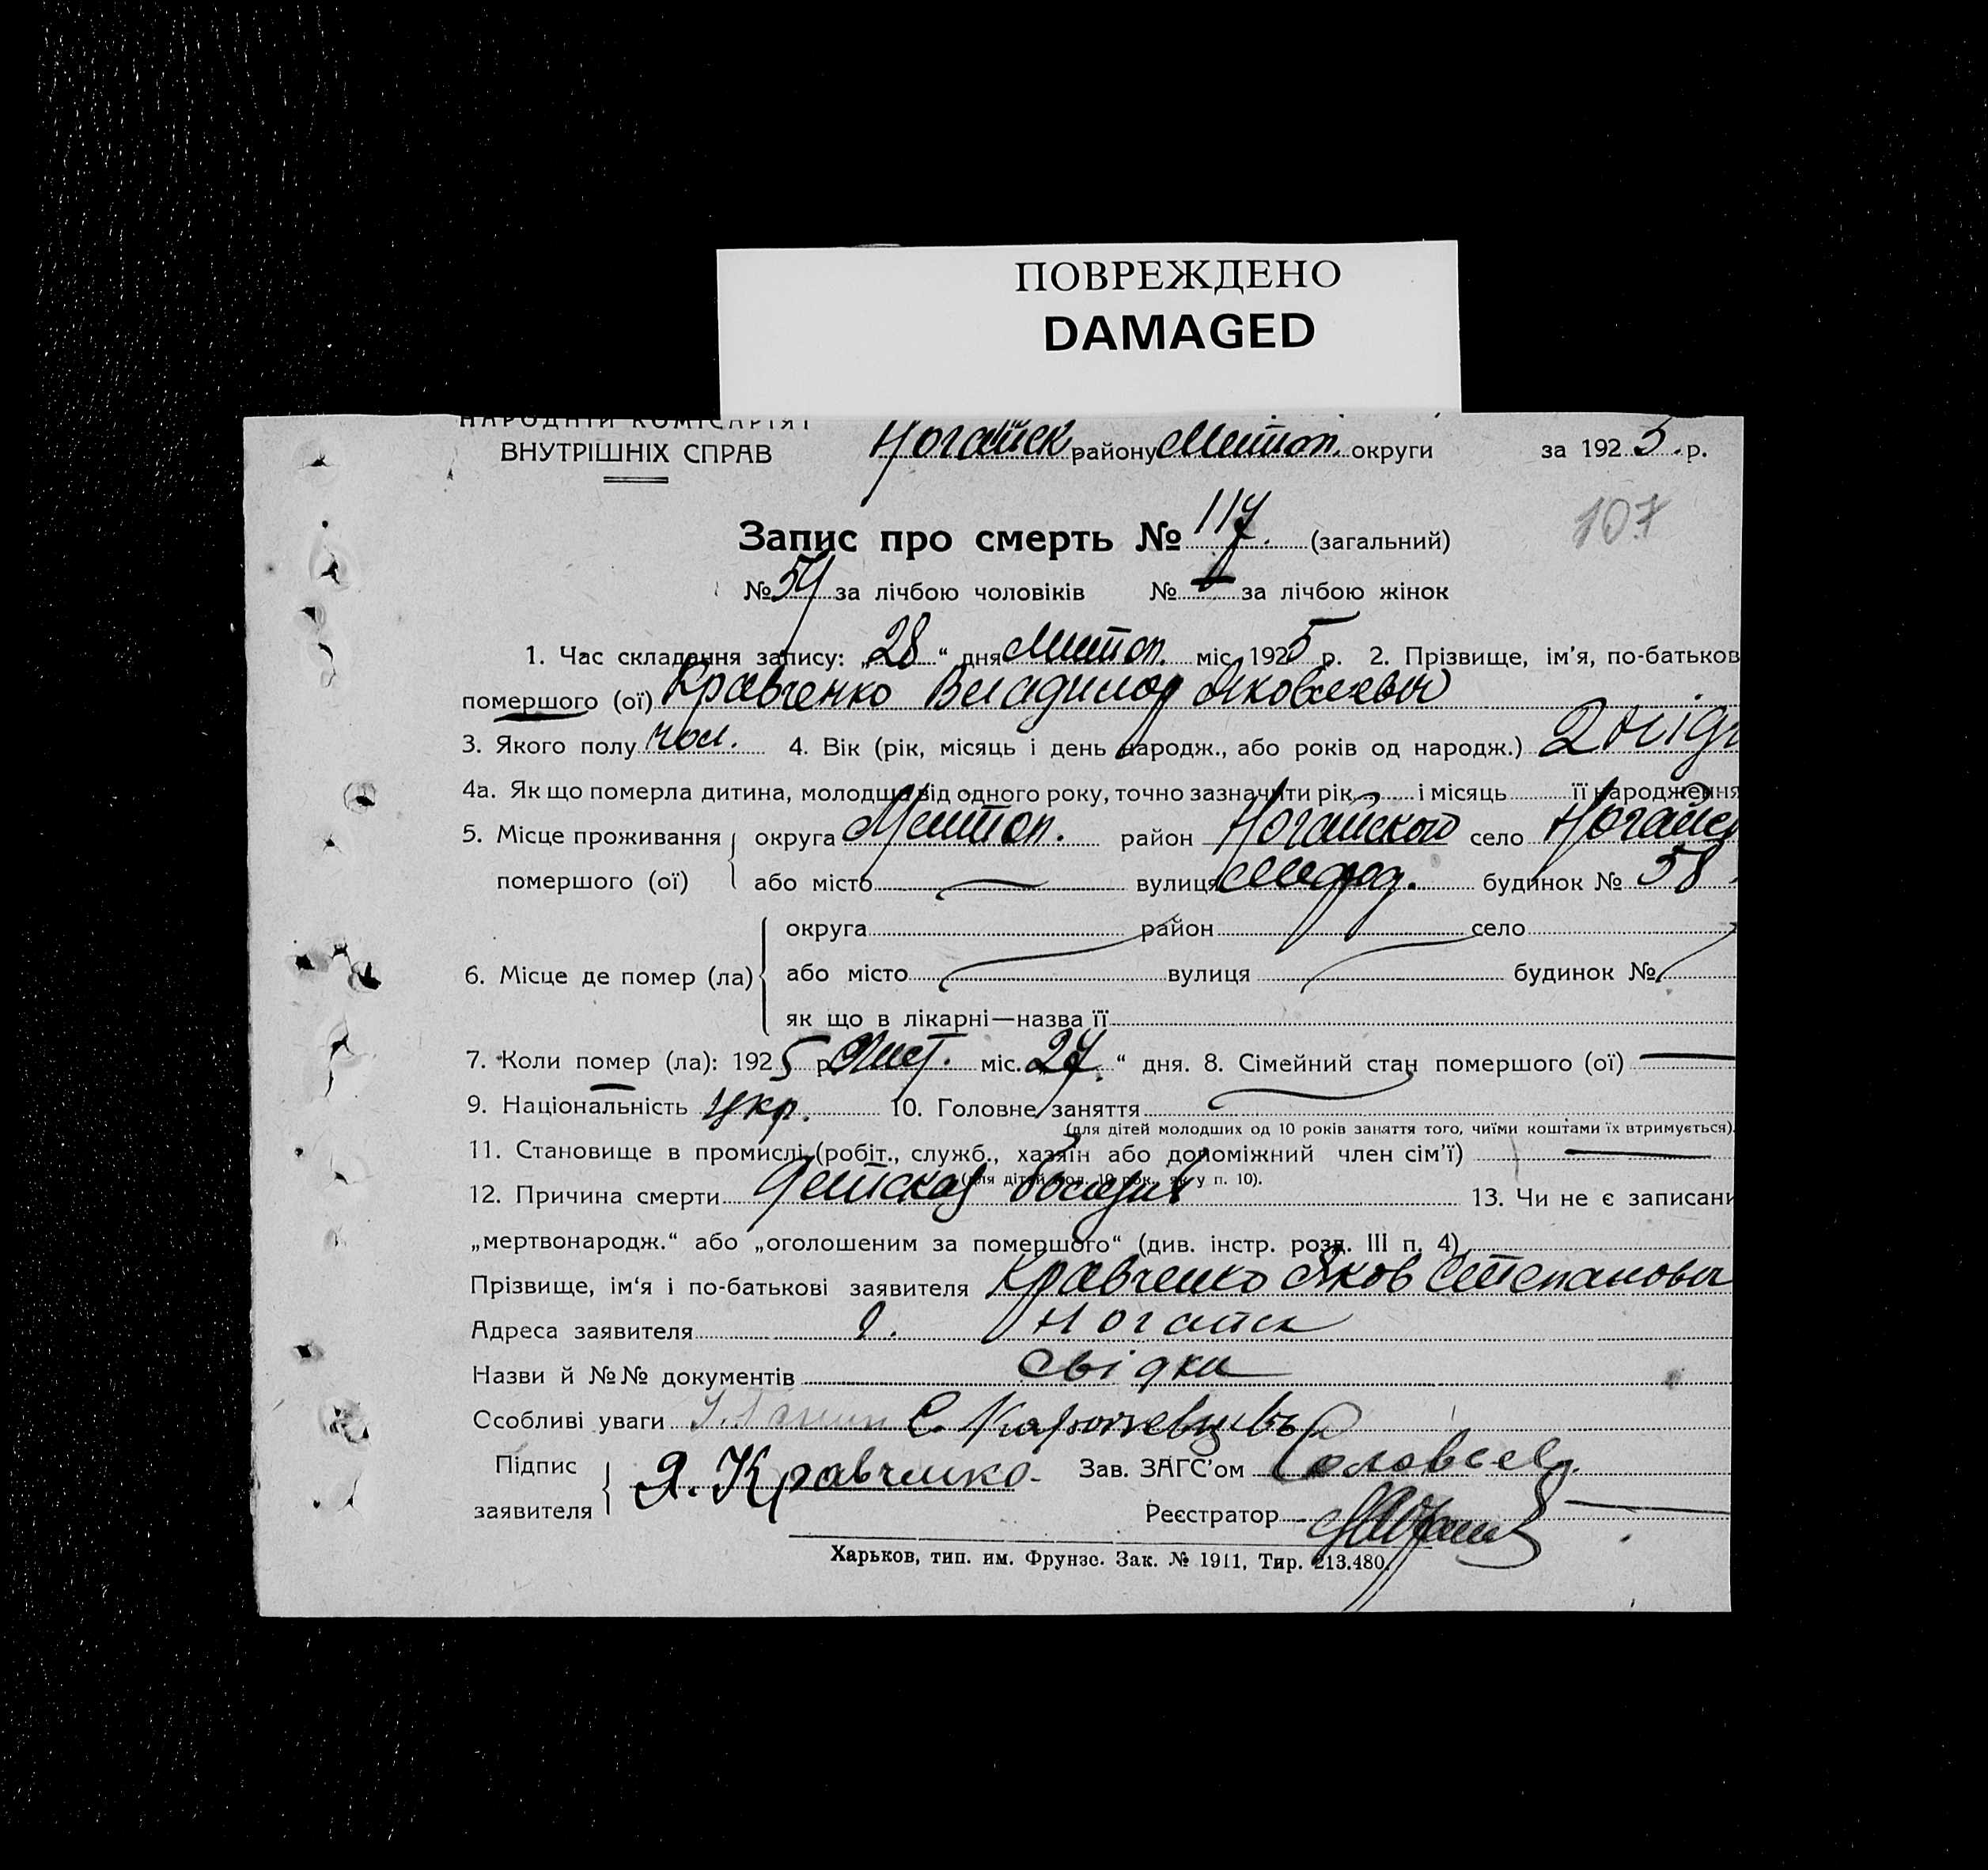 ПОВРЕЖДЕНО
DAMAGED
НАРОДНІЙ КОМІСАРІЯТ
ВНУТРІШНІХ СПРАВ Ногайск району Мелітоп. округи за 1925 р.
107
Запис про смерть № 117. (загальний)
№ 57 за лічбою чоловіків № за лічбою жінок
1. Час складання запису: „28“ дня міс. 1925 р. 2. Прізвище, ім’я, по-батьков
помершого (ої) Кравченко Владимир Яковлевич
3. Якого полу чол. 4. Вік (рік, місяць і день народж., або років од народж.) 2
4а. Як що померла дитина, молодша від одного року, точно зазначити рік і місяць її народження
5. Місце проживання округа Мелитоп. район Ногайского село Ногайск
помершого (ої) або місто вулиця будинок № 58
округа район село
6. Місце де помер (ла) або місто вулиця будинок №
як що в лікарні—назва її
7. Коли помер (ла): 1925 р. Лист. міс. „27.“ дня. 8. Сімейний стан помершого (ої)
9. Національність Укр. 10. Головне заняття
(для дітей молодших од 10 років заняття того, чиїми коштами їх втримується).
11. Становище в промислі (робіт., служб., хазяїн або допоміжний член сім’ї)
(для дітей мол. 10 рок., як у п. 10).
12. Причина смерти Детская болезнь 13. Чи не є записани
„мертвонародж.“ або „оголошеним за помершого“ (див. інстр. розд. III п. 4)
Прізвище, ім‘я і по-батькові заявителя Кравченко Яков Степанович
Адреса заявителя г. Ногайск
Назви й №№ документів Свідки
Ссобливі уваги С.
Підпис Я. Кравченко Зав. ЗАГС’ом Соловьев
заявителя Реєстратор
Харьков, тип. им. Фрунзе. Зак. № 1911, Тир. 213.480.